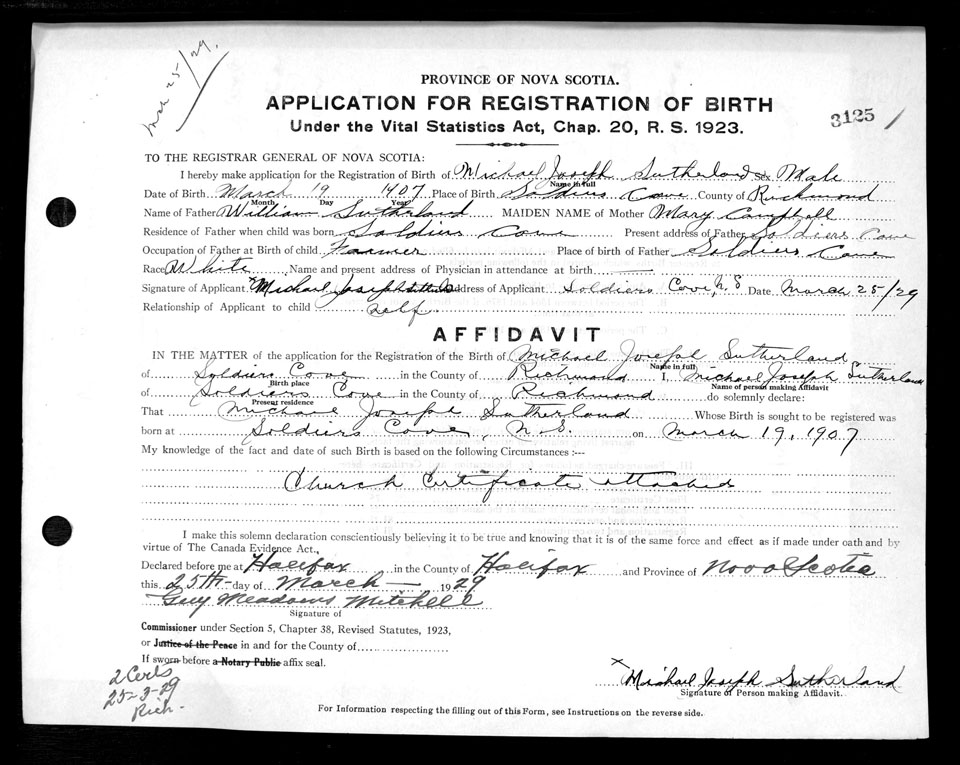 Mch 25/29.
PROVINCE OF NOVA SCOTIA.
APPLICATION FOR REGISTRATION OF BIRTH
3125 1
Under the Vital Statistics Act, Chap. 20, R. S. 1923.
TO THE REGISTRAR GENERAL OF NOVA SCOTIA:
I hereby make application for the Registration of Birth of Michael Joseph Sutherland Sex Male
Name in full
Date of Birth March 19 1907 Place of Birth Soldiers Cove County of Richmond
Month Day Year
Name of Father William Sutherland MAIDEN NAME of Mother Mary Campbell
Residence of Father when child was born Soldiers Cove Present address of Father Soldiers Cove
Occupation of Father at Birth of child Farmer Place of birth of Father Soldiers Cove
Race White Name and present address of Physician in attendance at birth —
Signature of Applicant x Michael Joseph Address of Applicant Soldiers Cove, N S Date March 25/29
Relationship of Applicant to child self.
AFFIDAVIT
IN THE MATTER of the application for the Registration of the Birth of Michael Joseph Sutherland
Name in full
of Soldiers Cove in the County of Richmond I, Michael Joseph Sutherland
Birth place Name of person making Affidavit
of Soldiers Cove in the County of Richmond do solemnly declare:
Present residence
That Michael Joseph Sutherland Whose Birth is sought to be registered was
born at Soldiers Cove, N. S. on March 19, 1907
My knowledge of the fact and date of such Birth is based on the following Circumstances :—
Church Certificate attached
I make this solemn declaration conscientiously believing it to be true and knowing that it is of the same force and effect as if made under oath and by
virtue of The Canada Evidence Act.,
Declared before me at Halifax in the County of Halifax and Province of Nova Scotia
this 25th day of March — 1929
Guy Meadows Mitchell
Signature of
Commissioner under Section 5, Chapter 38, Revised Statutes, 1923,
or Justice of the Peace in and for the County of
If sworn before a Notary Public affix seal.
2 Certs
25-3-29
Rich.
x Michael Joseph Sutherland
Signature of Person making Affidavit.
For Information respecting the filling out of this Form, see Instructions on the reverse side.